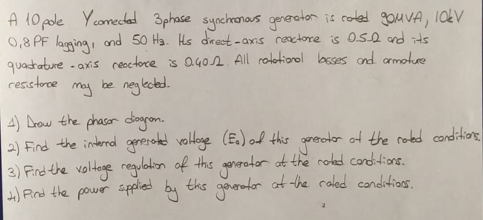 A 10 pole Y connected 3phase synchronous generator is rated 90MVA, 10kV
0,8 PF lagging, and 50 Hz. Its direct-axis reactance is 0.5Ω and its
quadrature-axis reactance is 0.40Ω. All rotational losses and armature
resistance may be neglected.
1) Draw the phasor diagram.
2) Find the internal generated voltage (Eₐ) of this generator at the rated conditions.
3) Find the voltage regulation of this generator at the rated conditions.
4) Find the power supplied by this generator at the rated conditions.